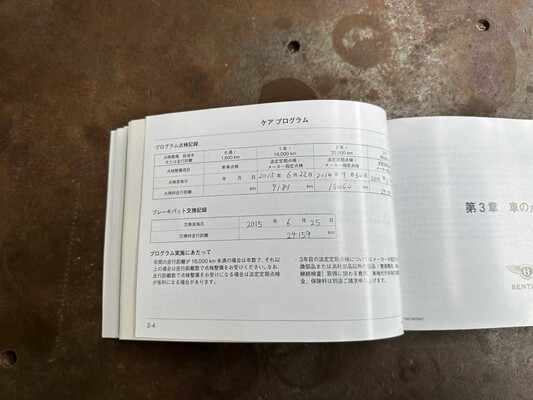 ケア プログラム
プログラム点検記録
点検整備、経過年または走行距離 6週/1,600 km 1年/16,000 km 2年/32,000 km
点検整備項目 新車点検 法定定期点検/メーカー指定点検 法定定期点検/メーカー指定点検
点検実施日 年 月 日 2013年 6月22日 2014年 9月30日
点検時走行距離 km 9181 km km
ブレーキパット交換記録
交換実施日 2015 年 6 月 25 日
交換時走行距離 24159 km
プログラム実施にあたって
・年間の走行距離が 16,000 km 未満の場合は年数で、それ以
上の場合は走行距離数で点検整備をお受けください。なお、
走行距離数で点検整備をお受けになる場合は法定定期点検
が有料になる場合があります。
・3年目の法定定期点検についてはメーカー
換部品または消耗部品以外の部品
継続検査）取得に関わる費用
金、保険料は別途ご請求申し上げます。
2-4
第 3 章 車の
BENTL